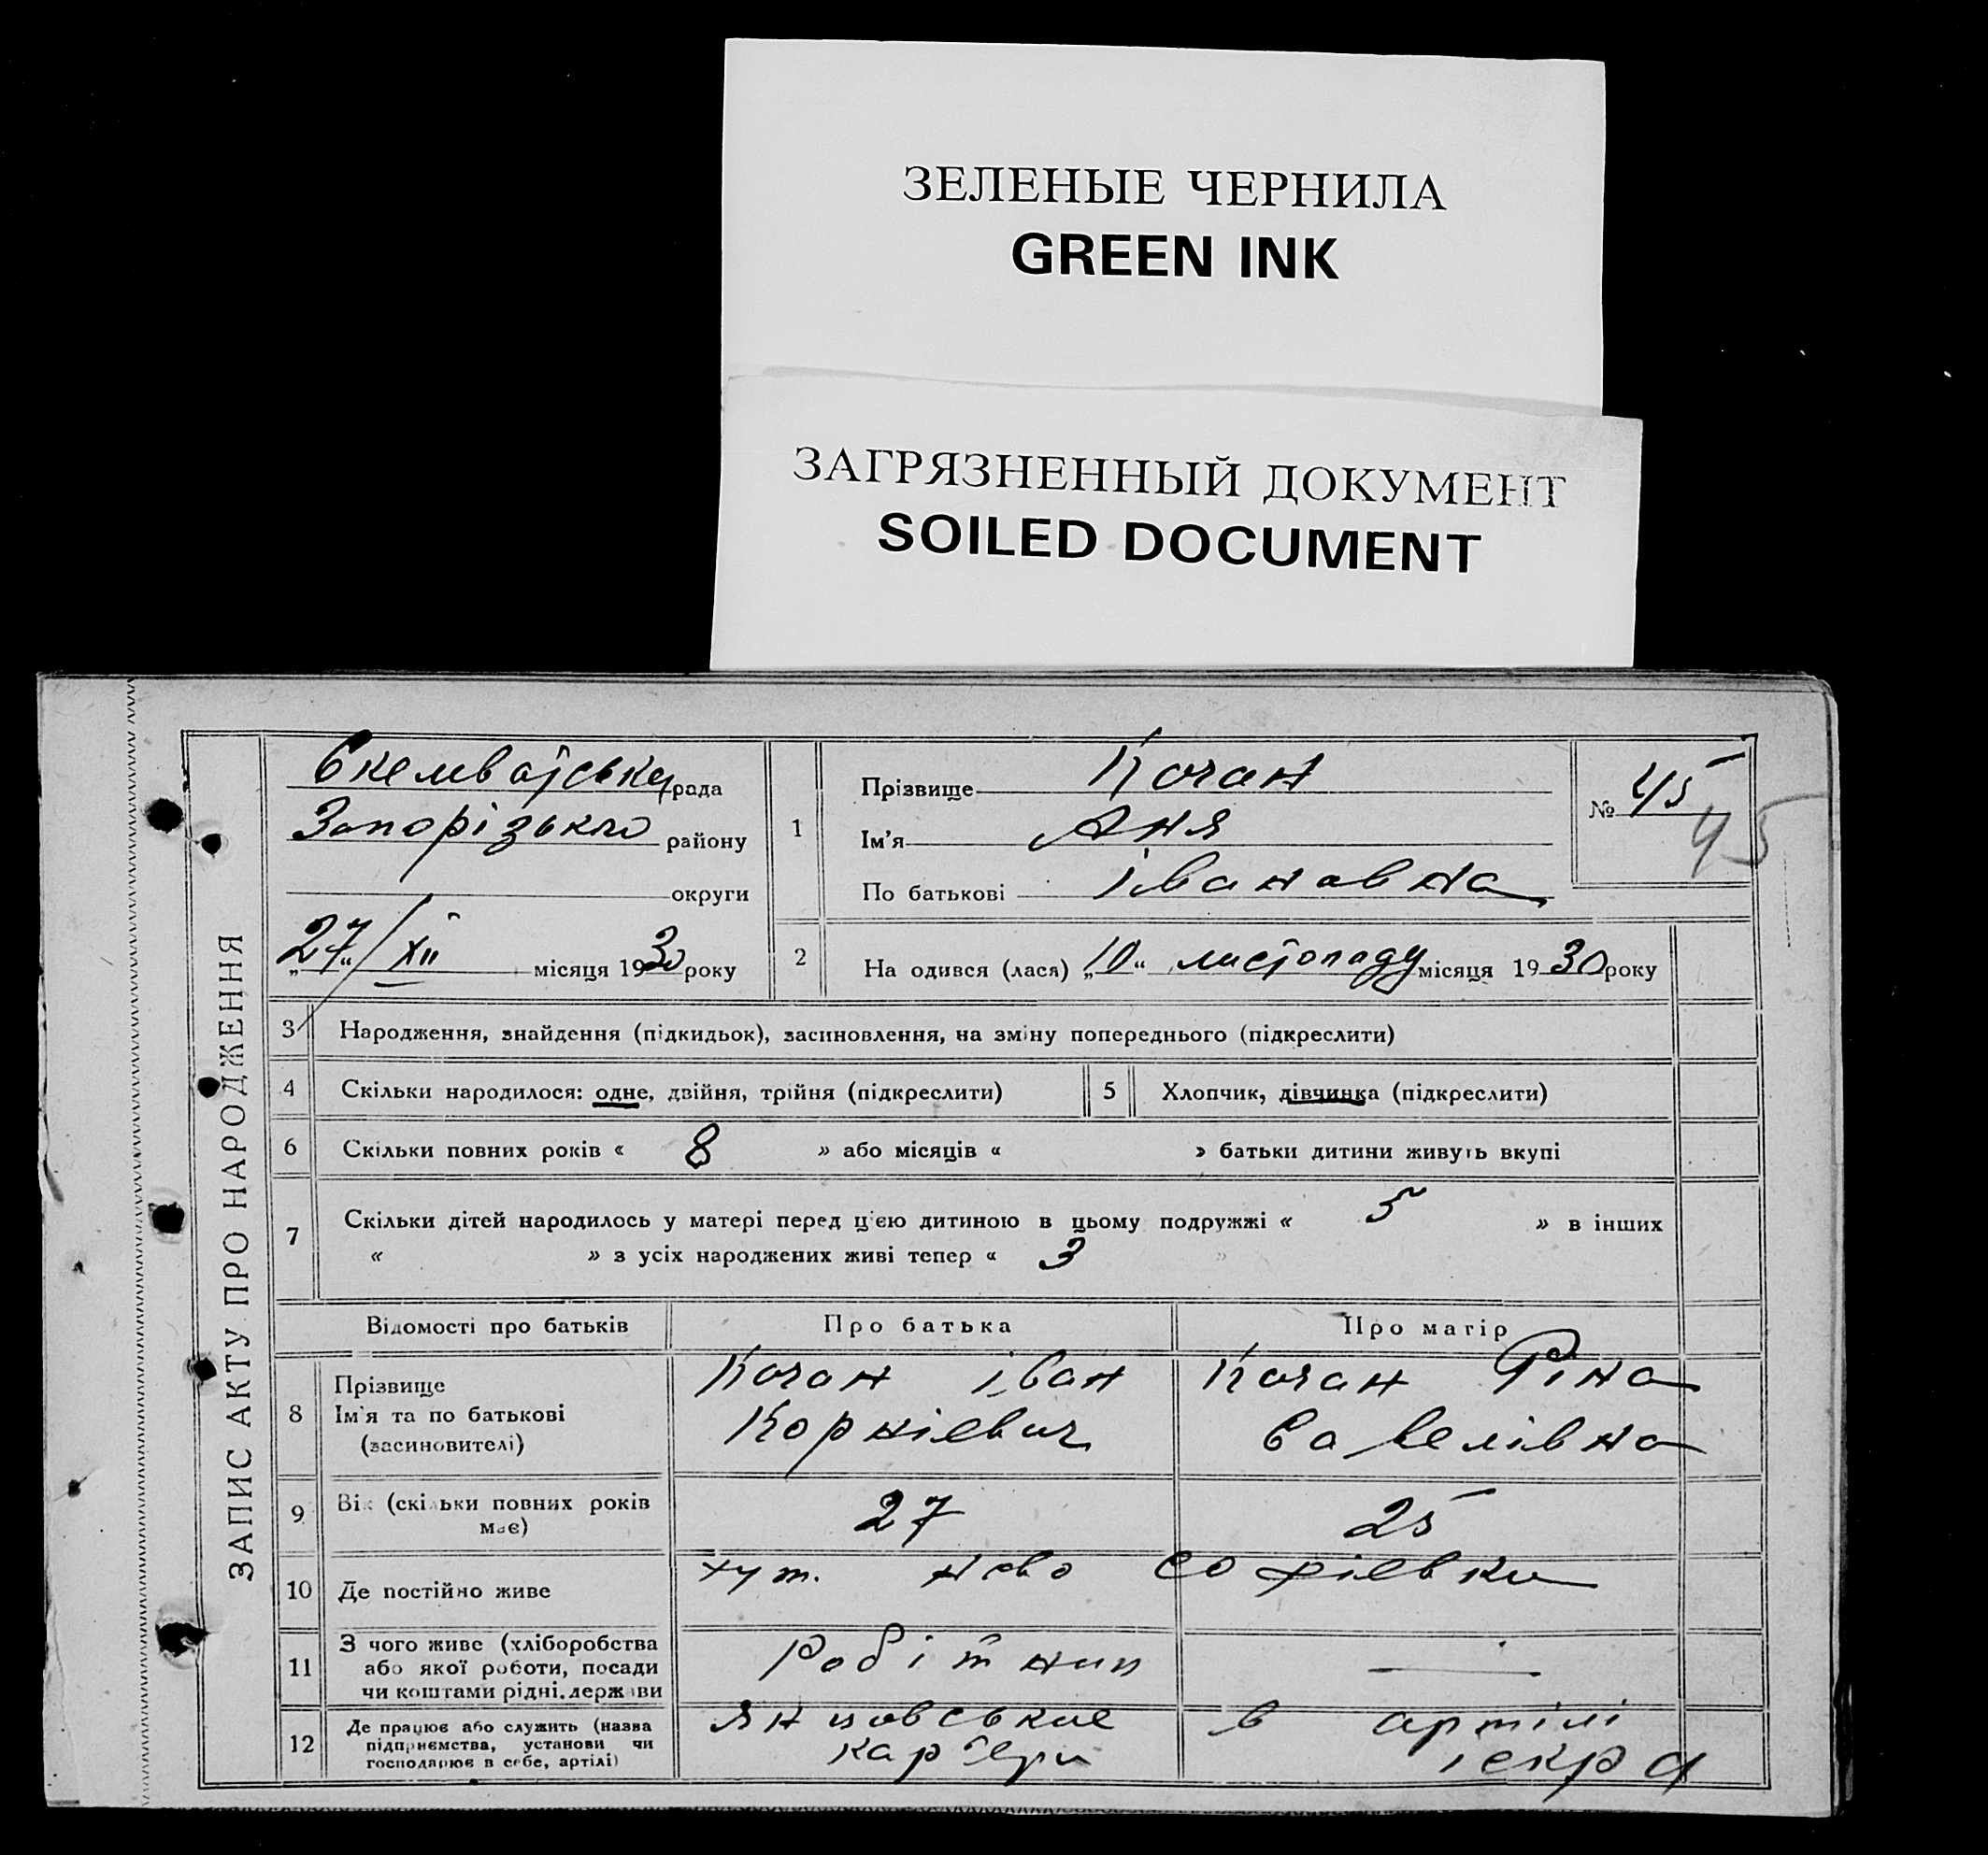 ЗЕЛЕНЫЕ ЧЕРНИЛА
GREEN INK
ЗАГРЯЗНЕННЫЙ ДОКУМЕНТ
SOILED DOCUMENT
ЗАПИС АКТУ ПРО НАРОДЖЕННЯ
рада
Запорізького району
округи
„27“/XII місяця 1930 року
1
Прізвище Кочан
Ім'я Аня
По батькові Івановна
№ 45
45
2 На одився (лася) „10“ листопаду місяця 1930 року
3 Народження, знайдення (підкидьок), засиновлення, на зміну попереднього (підкреслити)
4 Скільки народилося: одне, двійня, трійня (підкреслити) 5 Хлопчик, дівчинка (підкреслити)
6 Скільки повних років « 8 » або місяців « » батьки дитини живуть вкупі
7 Скільки дітей народилось у матері перед цією дитиною в цьому подружжі « 5 » в інших
« » з усіх народжених живі тепер « 3 »
Відомості про батьків Про батька Про матір
8 Прізвище Кочан Іван Кочан
Ім'я та по батькові Корнієвич Савелівна
(засиновителі)
9 Вік (скільки повних років має) 27 25
10 Де постійно живе хут. Ново Софіевки
11 З чого живе (хліборобства або якої роботи, посади чи коштами рідні, держави Робітник —
12 Де працює або служить (назва підприємства, установи чи господарює в себе, артілі) Янцовськие кар'єри в артілі іскра